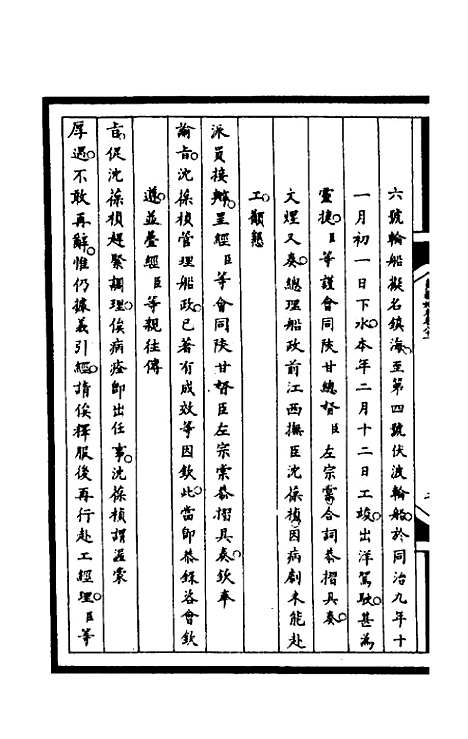 六號輪船擬名鎮海至第四號伏波輪船於同治九年十
一月初一日下水本年二月十二日工竣出洋駕駛甚為
靈捷臣等謹會同陝甘總督臣左宗棠合詞恭摺具奏
文煜又奏總理船政前江西撫臣沈葆楨因病劇未能赴
工顴懇
派員接辦呈經臣等會同陝甘督臣左宗棠恭摺具奏欽奉
諭旨沈葆楨管理船政已著有成效等因欽此當即恭錄咨會欽
遵並疊經臣等親往傳
旨促沈葆楨趕緊調理俟病痊即出任事沈葆楨謂渥蒙
厚遇不敢再辭惟仍據義引經請俟釋服後再行赴工經理臣等